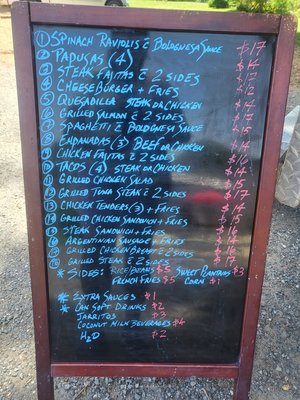 ① Spinach Raviolis c̄ Bolognesa Sauce $17
② Padusas (4) $14
③ Steak Fajitas c̄ 2 sides $17
④ Cheeseburger + Fries $12
⑤ Quesadilla steak or chicken $14
⑥ Grilled Salmon c̄ 2 sides $17
⑦ Spaghetti c̄ Bolognesa Sauce $15
⑧ Enpanadas (3) Beef or Chicken $14
⑨ Chicken Fajitas c̄ 2 sides $16
⑩ Tacos (4) steak or chicken $14
⑪ Grilled Chicken Salad $15
⑫ Grilled Tuna Steak c̄ 2 sides $17
⑬ Chicken Tenders (3) + Fries $14
⑭ Grilled Chicken Sandwich + Fries $15
⑮ Steak Sandwich + Fries $16
⑯ Argentinian Sausage + Fries $14
⑰ Grilled Chicken Breast c̄ 2 sides $16
⑱ Grilled Steak c̄ 2 sides $17
* Sides: Rice/Beans $5 Sweet Plantains $3
French Fries $5 Corn $1
* Extra Sauces $1
* Can Soft Drinks $2
Jarritos $3
Coconut Milk Beverages $4
H2O $2